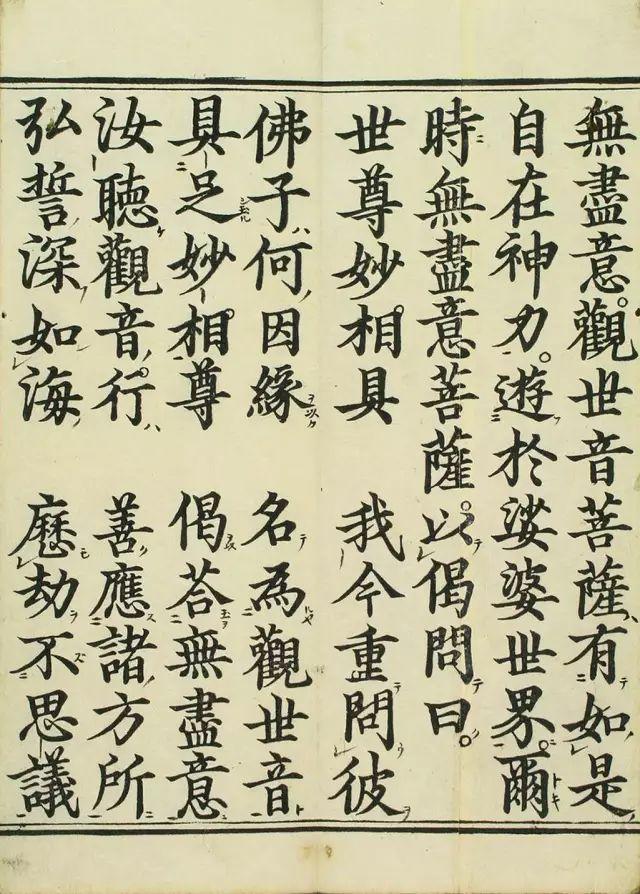 無盡意。觀世音菩薩、有如是
自在神力。遊於娑婆世界。爾
時無盡意菩薩。以偈問曰。
世尊妙相具　我今重問彼
佛子何因緣　名為觀世音
具足妙相尊　偈荅無盡意
汝聽觀音行　善應諸方所
弘誓深如海　歷劫不思議